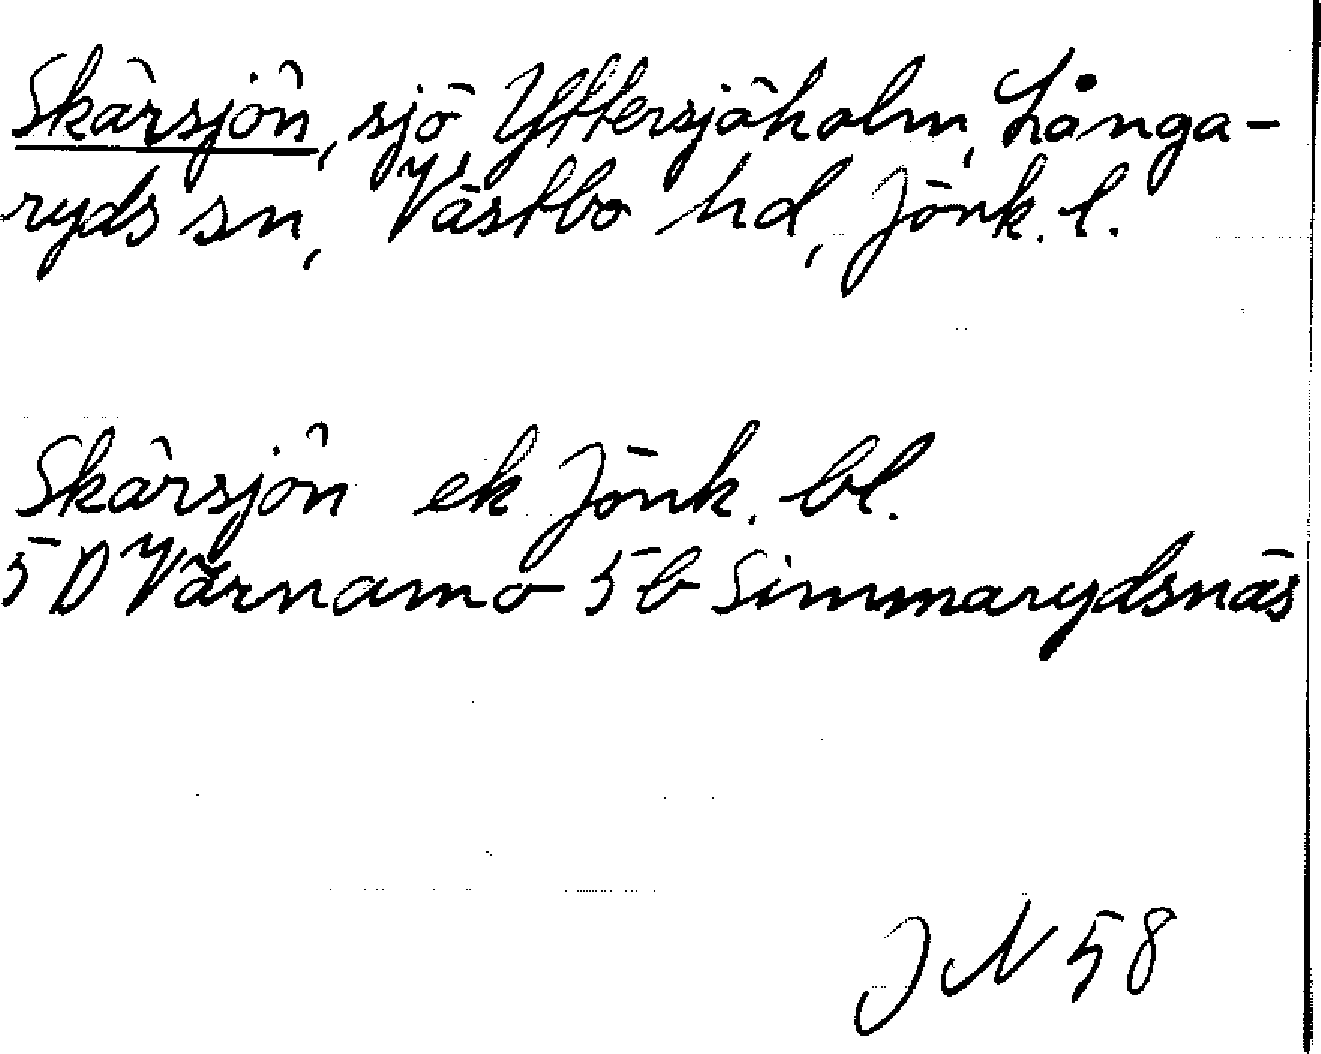 Skärsjön, sjö, Yttersjöholm, Långa-
ryds sn, Västbo hd, Jönk. l.
Skärsjön ek. Jönk. bl.
5 D Värnamo 5 b Simmarydsnäs
JN 58